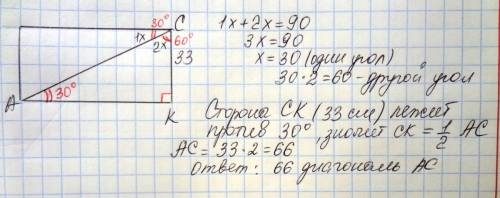 30° C
1x
2x
60°
33
A
30°
K
1x+2x=90
3x=90
x=30 (один угол)
30·2=60°-другой угол
Сторона СК (33 см) лежит
против 30°, значит СК = 1/2 АС
АС = 33·2=66
Ответ: 66 диагональ АС